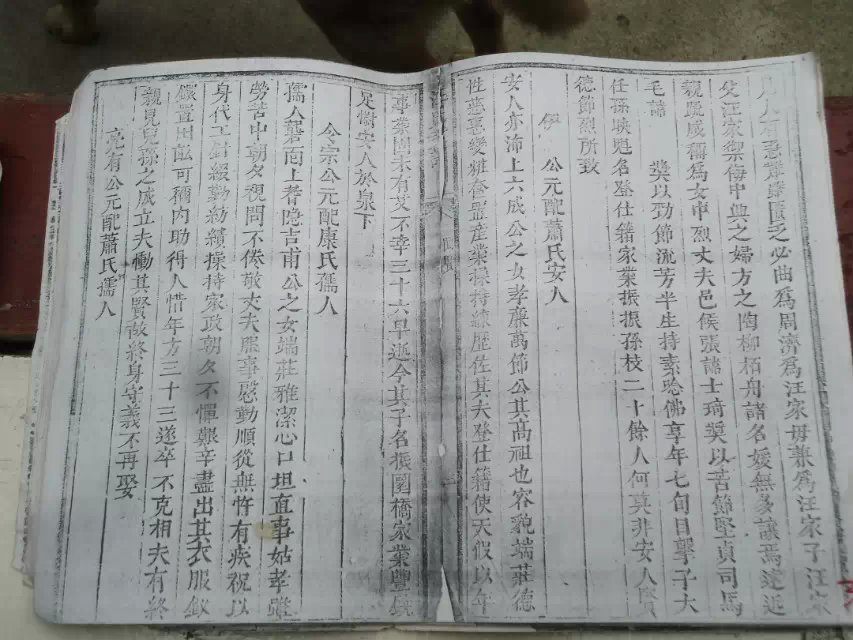 人有急難歸匱乏必曲為周濟為汪家母兼為汪家子汪家
父汪家禦侮中興之婦方之陶柳栢舟諸名媛無多讓焉遠近
親疏咸稱為女中烈丈夫邑侯張諱士琦奬以苦節堅貞司馬
毛諱 奬以勁節流芳半生持素唸佛享年七旬目擊子大
任孫映魁名登仕籍家業振振孫枝二十餘人何莫非安人賢
德節烈所致
伊 公元配蕭氏安人
安人亦沛上六成公之女孝廉萬節公其高祖也容貌端莊德
性慈惠變粧奩置產業操持練歷佐其夫登仕籍使天假以年
事業固未有艾不幸三十六早逝今其子名振園橋家業豐饒
足慰安人於泉下
今宗公元配康氏孺人
孺人砻面上耆隐吉甫公之女端莊雅潔心口坦直事姑孝雖
勞苦中朝夕視問不倦敬丈夫凞事慇勤順從無忤有疾祝以
身代工針綴勤紡績操持家政朝夕不憚艱辛盡出其衣服釵
鐶置田畆可稱內助得人惜年方三十三遂卒不克相夫有終
親見兒孫之成立夫慟其賢故終身守義不再娶
亮有公元配蕭氏孺人